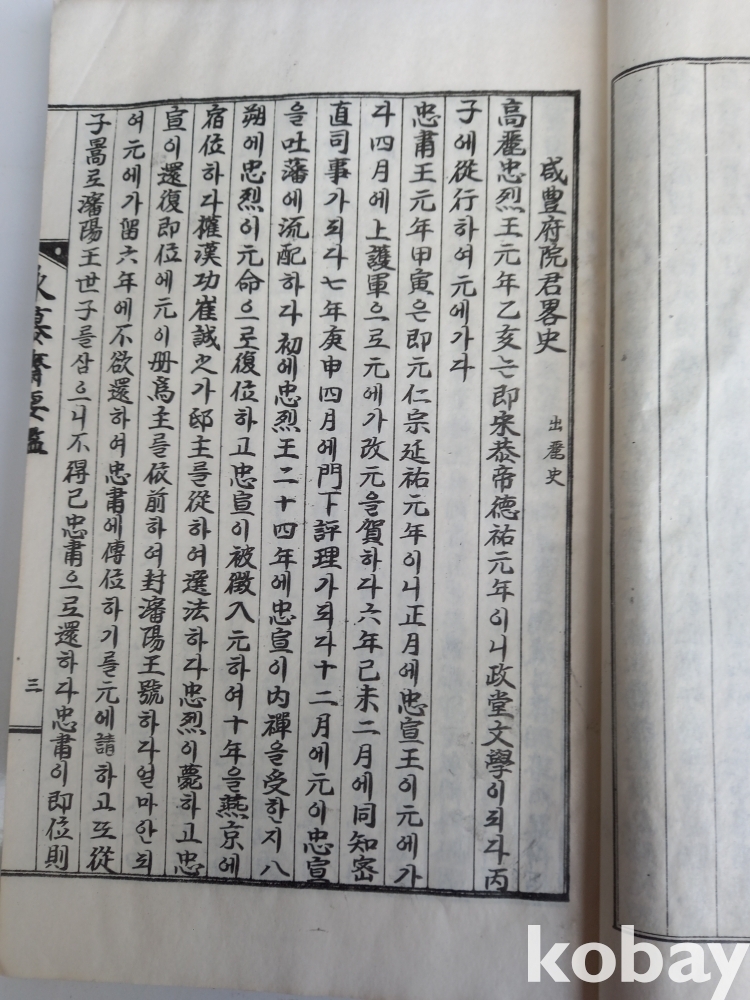 咸豊府院君畧史 出麗史
高麗忠烈王元年乙亥는即宋恭帝德祐元年이니政堂文學이되다丙
子에從行하여元에가다
忠肅王元年甲寅은即元仁宗延祐元年이니正月에忠宣王이元에가
다四月에上護軍으로元에가改元을賀하다六年己未二月에同知密
直司事가되다七年庚申四月에門下評理가되다十二月에元이忠宣
을吐藩에流配하다初에忠烈王二十四年에忠宣이內禪을受한지八
朔에忠烈이元命으로復位하고忠宣이被徵入元하여十年을燕京에
宿位하다權漢功崔誠之가邸主를從하여選法하다忠烈이薨하고忠
宣이還復即位에元이册爲主를依前하여封瀋陽王號하다얼마안되
여元에가留六年에不欲還하여忠肅에傳位하기를元에請하고또從
子暠로瀋陽王世子를삼으니不得已忠肅으로還하다忠肅이即位則
永慕齋要鑑
三
kobay